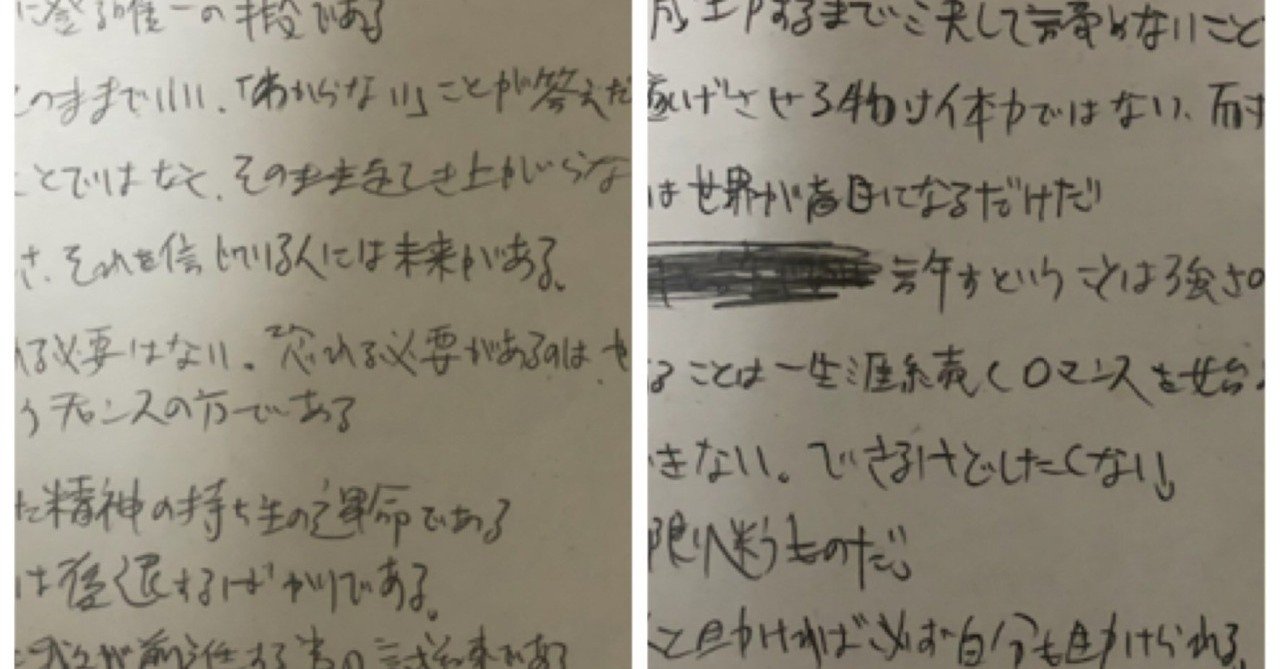 に登る唯一の手段である
このままでいい、「わからない」ことが答えだ
ことではなく、そのままをてき上がらな
さ、それを信じている人には未来がある、
れる必要はない。恐れる必要があるのは、も
うチャンスの方である
た精神の持ち主の運命である
は後退するばかりである。
が前進する為の
成功するまで決して諦めないこと
遂げさせる物は体力ではない、耐
は世界が盲目になるだけだ
許すということは強さの
ることは一生涯続くロマンスを始め
きない。できるけどしたくない
限り迷うものだ
と助ければ必ず自分も助けられる。